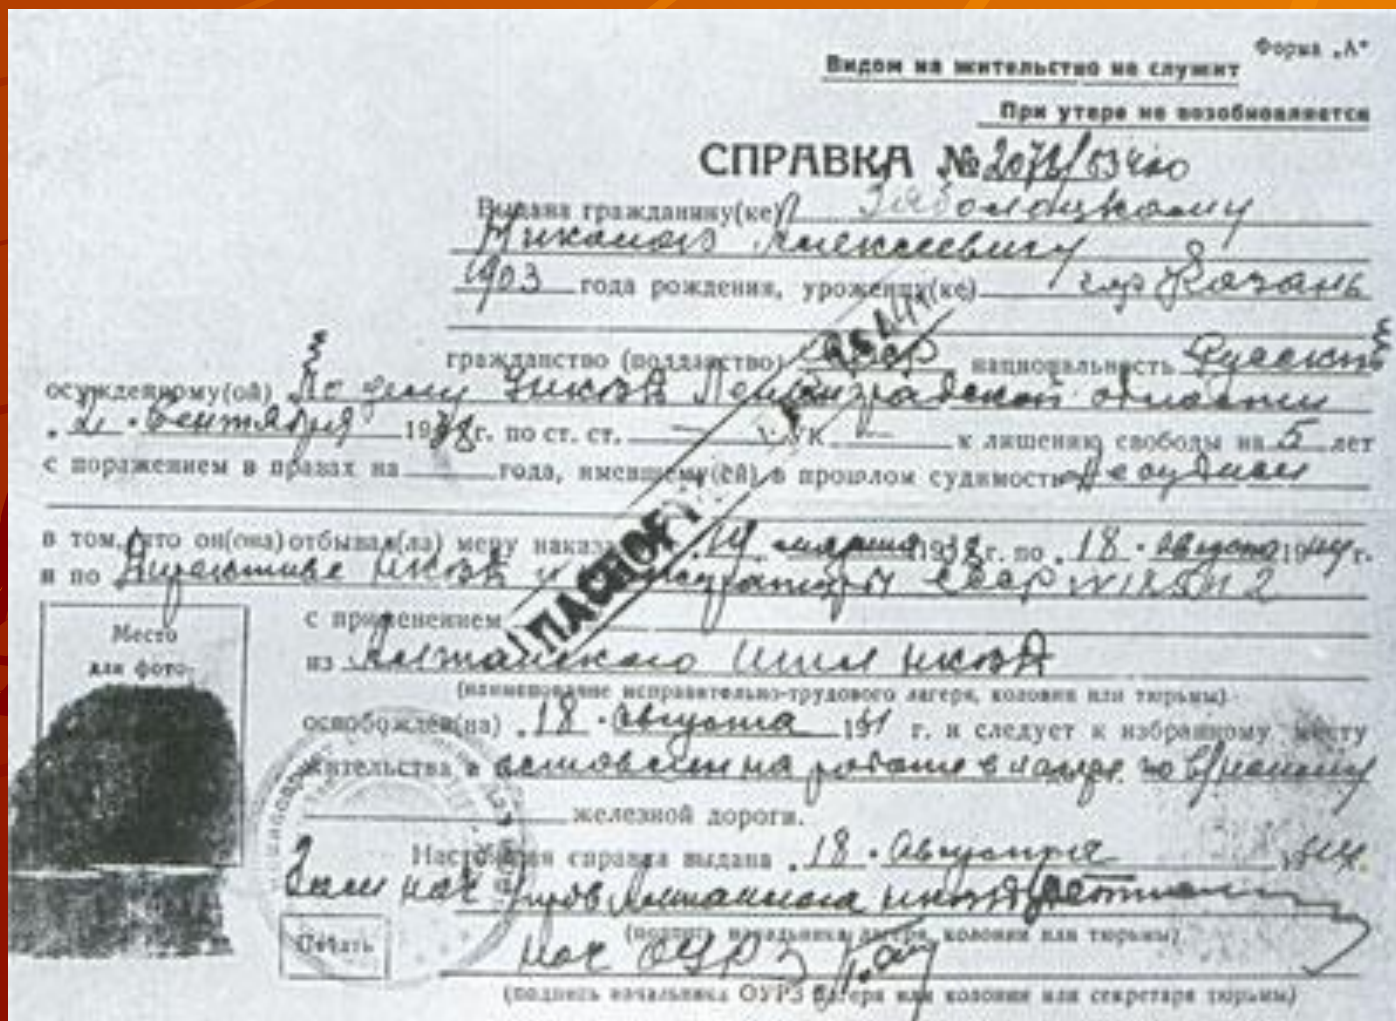 Форма „А"
Видом на жительство не служит
При утере не возобновляется
СПРАВКА №
Выдана гражданину(ке) Заболоцкому
Николаю Алексеевичу
1903 года рождения, уроженцу(ке) гор Казань
гражданство (подданство) СССР национальность Русский
осужденному(ой) По делу УНКВД Ленинградской области
„2" Сентября 1938 г. по ст. ст. — УК к лишению свободы на 5 лет
с поражением в правах на года, имевшему(ей) в прошлом судимость Не судим
в том, что он(она) отбывал(ла) меру наказания 19 марта 1938 г. по „18" августа 1944 г.
и по Директиве НКВД и Прокуратуры СССР №
с применением
из Алтайского НКВД
(наименование исправительно-трудового лагеря, колонии или тюрьмы)
освобожден(на) „18" Августа г. и следует к избранному месту
жительства оставлен на работе в лагере по в/найму
железной дороги.
Настоящая справка выдана „18" Августа 1944.
Зам нач Алтайлага НКВД
(подпись начальника лагеря, колонии или тюрьмы)
Печать
нач ОУРЗ
(подпись начальника ОУРЗ лагеря или колонии или секретаря тюрьмы)
Место
для фото-
ПАСПОРТ